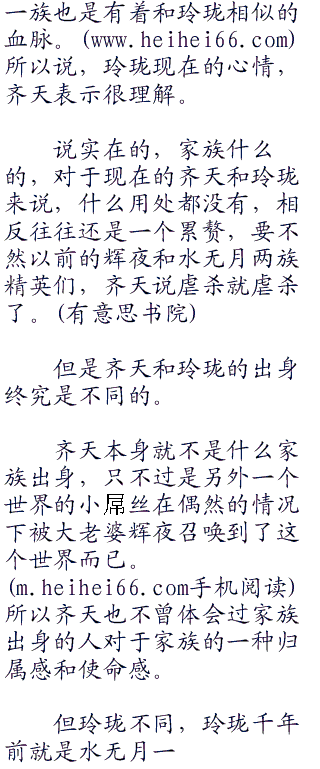 一族也是有着和玲珑相似的
血脉。(www.heihei66.com)
所以说，玲珑现在的心情，
齐天表示很理解。
说实在的，家族什么
的，对于现在的齐天和玲珑
来说，什么用处都没有，相
反往往还是一个累赘，要不
然以前的辉夜和水无月两族
精英们，齐天说虐杀就虐杀
了。(有意思书院)
但是齐天和玲珑的出身
终究是不同的。
齐天本身就不是什么家
族出身，只不过是另外一个
世界的小屌丝在偶然的情况
下被大老婆辉夜召唤到了这
个世界而已。
(m.heihei66.com手机阅读)
所以齐天也不曾体会过家族
出身的人对于家族的一种归
属感和使命感。
但玲珑不同，玲珑千年
前就是水无月一